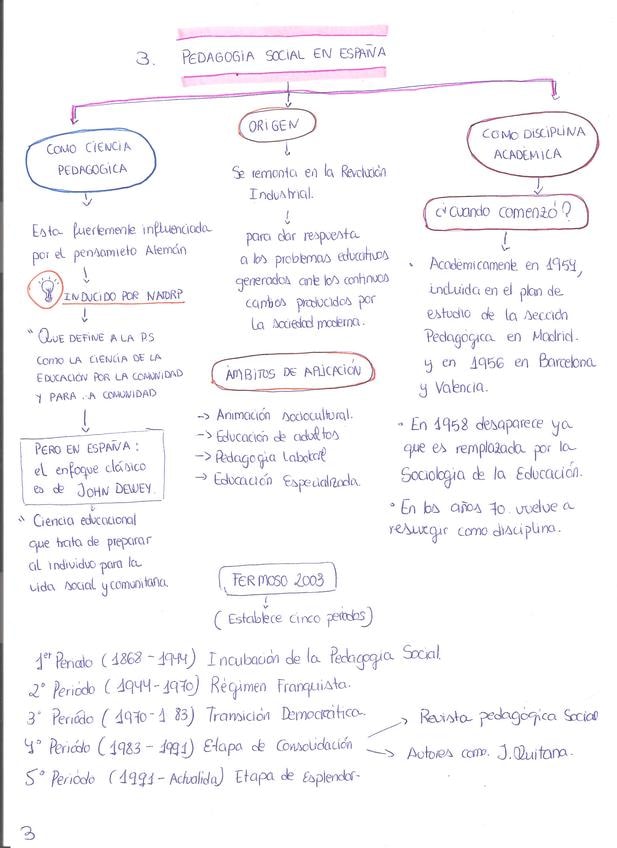 3. PEDAGOGIA SOCIAL EN ESPAÑA
COMO CIENCIA
PEDAGOGICA
Esta fuertemente influenciada
por el pensamieto Alemán
INDUCIDO POR NATORP
"QUE DEFINE A LA PS
COMO LA CIENCIA DE LA
EDUCACIÓN POR LA COMUNIDAD
Y PARA . A COMUNIDAD
PERO EN ESPAÑA:
el enfoque clásico
es de JOHN DEWEY.
"Ciencia educacional
que trata de preparar
al individuo para la
vida social y comunitaria.
ORIGEN
Se remonta en la Revolución
Industrial.
para dar respuesta
a los problemas educativos
generados ante los continuos
cambios producidos por
la sociedad moderna.
ÁMBITOS DE APLICACIÓN
-> Animación sociocultural.
-> Educación de adultos
-> Pedagogia laboral
-> Educación Especializada
COMO DISCIPLINA
ACADÉMICA
¿Cuando comenzó?
• Académicamente en 1954,
incluida en el plan de
estudio de la sección
Pedagógica en Madrid.
y en 1956 en Barcelona
y Valencia.
• En 1958 desaparece ya
que es remplazada por la
Sociologia de la Educación.
• En los años 70. vuelve a
resurgir como disciplina.
FERMOSO 2003
(Establece cinco periodos)
1er Periodo (1868-1944) Incubación de la Pedagogia Social.
2º Periódo (1944-1970) Régimen Franquista.
3º Periódo (1970-1 83) Transición Democrática.
4º Periódo (1983-1991) Etapa de Consolidación
Revista pedagógica Social
Autores como. J. Quitana.
5º Periódo (1991-Actualida) Etapa de Esplendor.
3